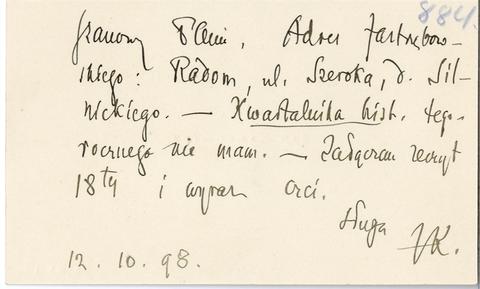 884.
Szanowny Panie, Adres Jastrzębow-
skiego: Radom, ul. Szeroka, d. Sil-
nickiego. — Kwartalnika hist. tego-
rocznego nie mam. — Załączam zeszyt
18ty i wyraz czci.
Sługa
JK.
12. 10. 98.